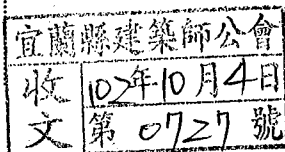 宜蘭縣建築師公會
收文 102年10月4日
第 0727 號